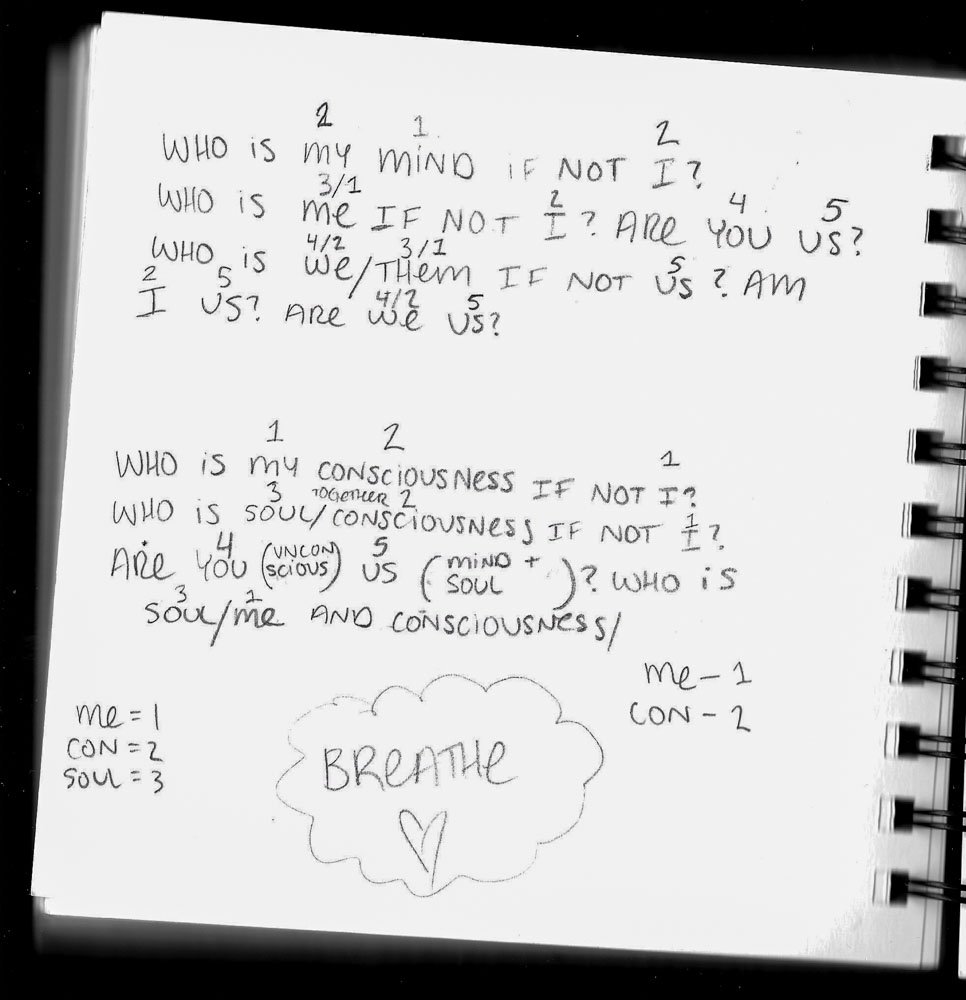 2 1 2
WHO IS MY MIND IF NOT I?
3/1 2 4 5
WHO IS ME IF NOT I? ARE YOU US?
4/2 3/1 5
WHO IS WE/THEM IF NOT US? AM
2 5 4/2 5
I US? ARE WE US?
1 2 1
WHO IS MY CONSCIOUSNESS IF NOT I?
3 TOGETHER 2 1
WHO IS SOUL/CONSCIOUSNESS IF NOT I?
4 5
ARE YOU (UNCONSCIOUS) US (MIND + SOUL)? WHO IS
3 1
SOUL/ME AND CONSCIOUSNESS/
ME - 1
CON - 2
ME = 1
CON = 2
SOUL = 3
BREATHE